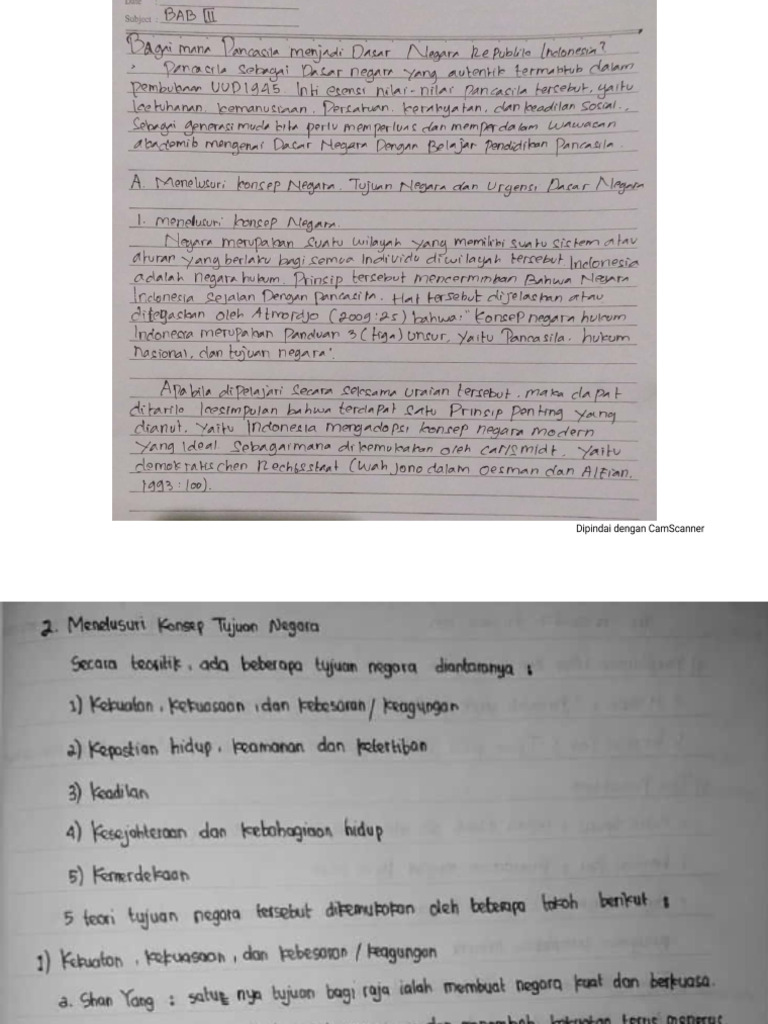 Subject : BAB III
Bagaimana Pancasila menjadi Dasar Negara Republik Indonesia?
Pancasila sebagai Dasar negara yang autentik termaktub dalam
pembukaan UUD 1945. Inti esensi nilai-nilai pancasila tersebut, yaitu
ketuhanan, kemanusiaan, Persatuan, kerakyatan, dan keadilan sosial.,
Sebagai generasi muda kita perlu memperluas dan memperdalam wawasan
akademik mengenai Dasar Negara Dengan Belajar pendidikan Pancasila.
A. Menelusuri konsep Negara, Tujuan Negara dan Urgensi Dasar Negara
1. menelusuri konsep Negara.
Negara merupakan suatu wilayah yang memiliki suatu sistem atau
aturan yang berlaku bagi semua individu diwilayah tersebut Indonesia
adalah negara hukum. Prinsip tersebut mencerminkan Bahwa Negara
Indonesia sejalan Dengan pancasila. Hal tersebut dijelaskan atau
ditegaskan oleh Atmordjo (2009:25) bahwa: "Konsep negara hukum
Indonesia merupakan Panduan 3 (tiga) unsur, yaitu Pancasila, hukum
nasional, dan tujuan negara".
Apabila dipelajari secara seksama uraian tersebut, maka dapat
ditarik kesimpulan bahwa terdapat satu Prinsip penting yang
dianut, yaitu Indonesia mengadopsi konsep negara modern
yang ideal. Sebagaimana dikemukakan oleh carlsmidt, yaitu
demokratischen Rechtsstaat (Wahjono dalam Oesman dan Alfian,
1993:100).
Dipindai dengan CamScanner
2. Menelusuri Konsep Tujuan Negara
Secara teoritik, ada beberapa tujuan negara diantaranya :
1) Kekuatan, kekuasaan, dan kebesaran / keagungan
2) Kepastian hidup, keamanan dan ketertiban
3) Keadilan
4) Kesejahteraan dan kebahagiaan hidup
5) Kemerdekaan
5 teori tujuan negara tersebut dikemukakan oleh beberapa tokoh berikut :
1) Kekuatan, kekuasaan, dan kebesaran / keagungan
a. Shan Yang : satu2 nya tujuan bagi raja ialah membuat negara kuat dan berkuasa.
kekuatan terus menerus